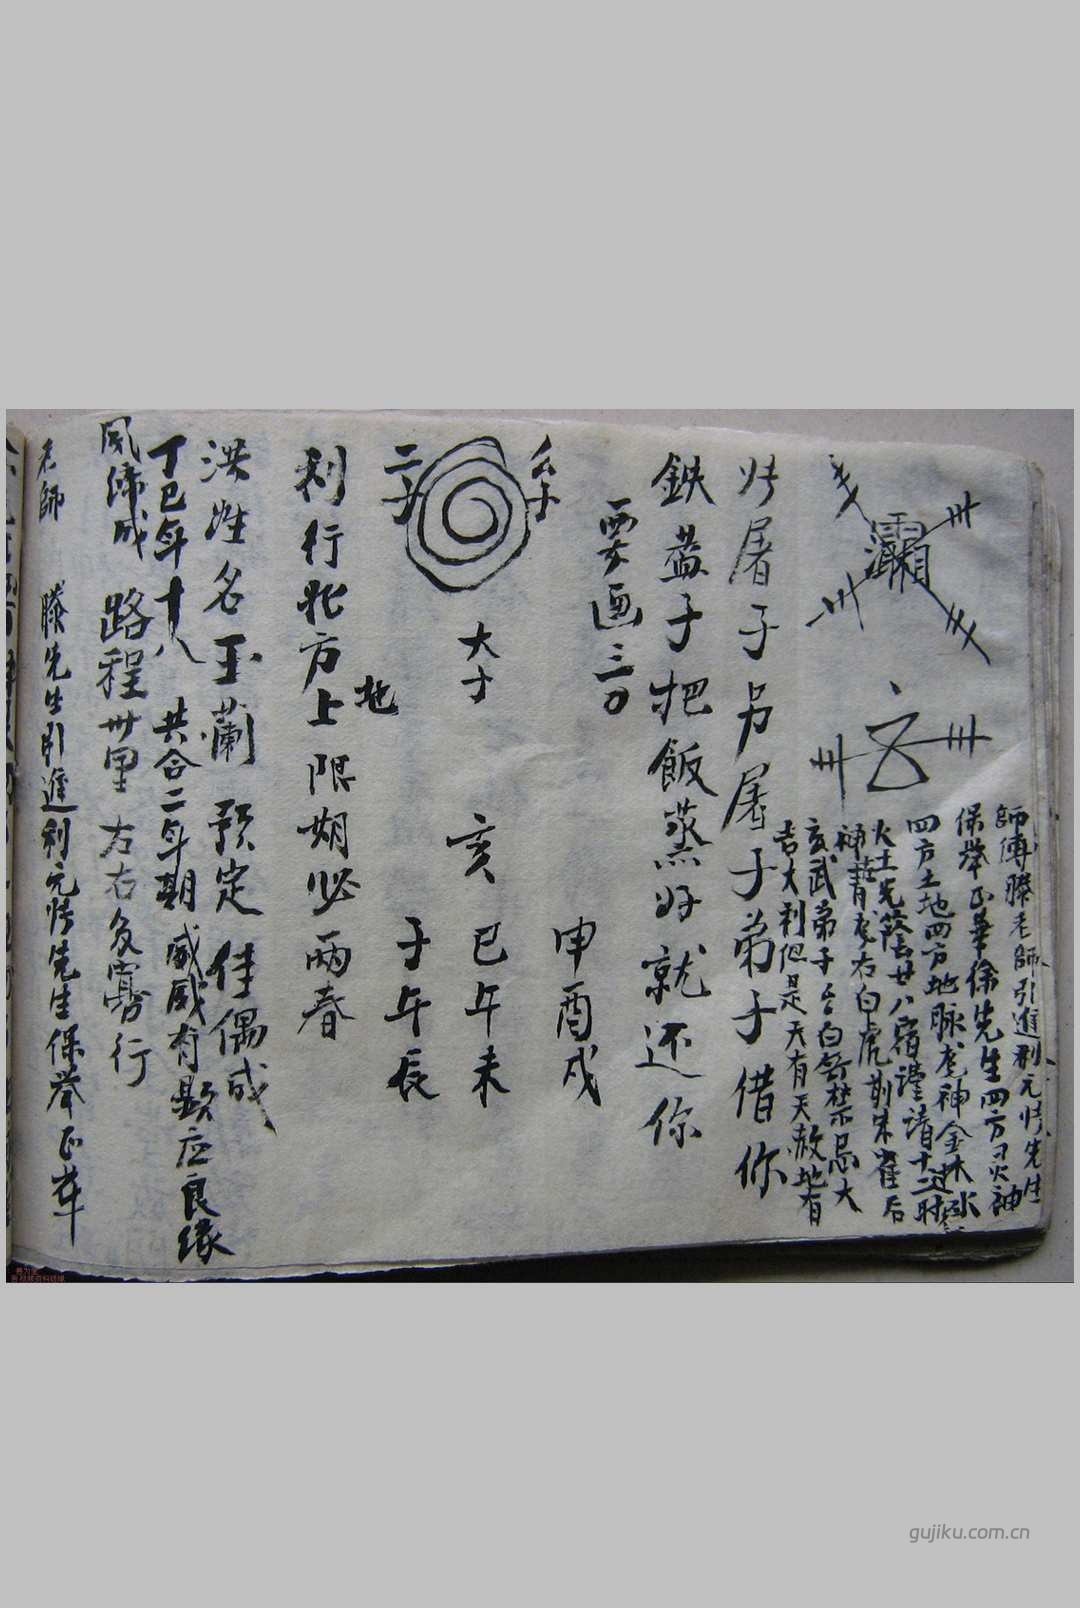 師傅滕老師引進利元情先生
保举正華徐先生四方灵神
四方土地四方地脉龙神金木水
火土先蔭廿八宿謹请十二时
神青龙右白虎前朱雀后
玄武弟子白禁忌大
吉大利但是天有天赦地有
屠子另屠子弟子借你
鉄蓋子把飯蒸好就还你
要画三〇
申酉戌
大子 亥巳午未
二子 子午辰
利行北方上限期必两春
地
洪姓名玉蘭 預定佳偶成
丁巳年十八 共合二年期威威有影应良缘
風缔成 路程卅里左右交寡行
老師 滕先生引進利元情先生保举正華
gujiku.com.cn